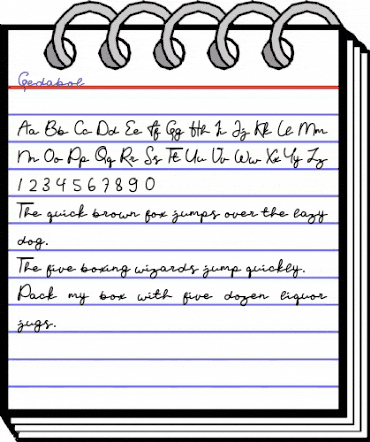 Gedabol
Aa Bb Cc Dd Ee Ff Gg Hh Ii Jj Kk Ll Mm
Nn Oo Pp Qq Rr Ss Tt Uu Vv Ww Xx Yy Zz
1 2 3 4 5 6 7 8 9 0
The quick brown fox jumps over the lazy
dog.
The five boxing wizards jump quickly.
Pack my box with five dozen liquor
jugs.